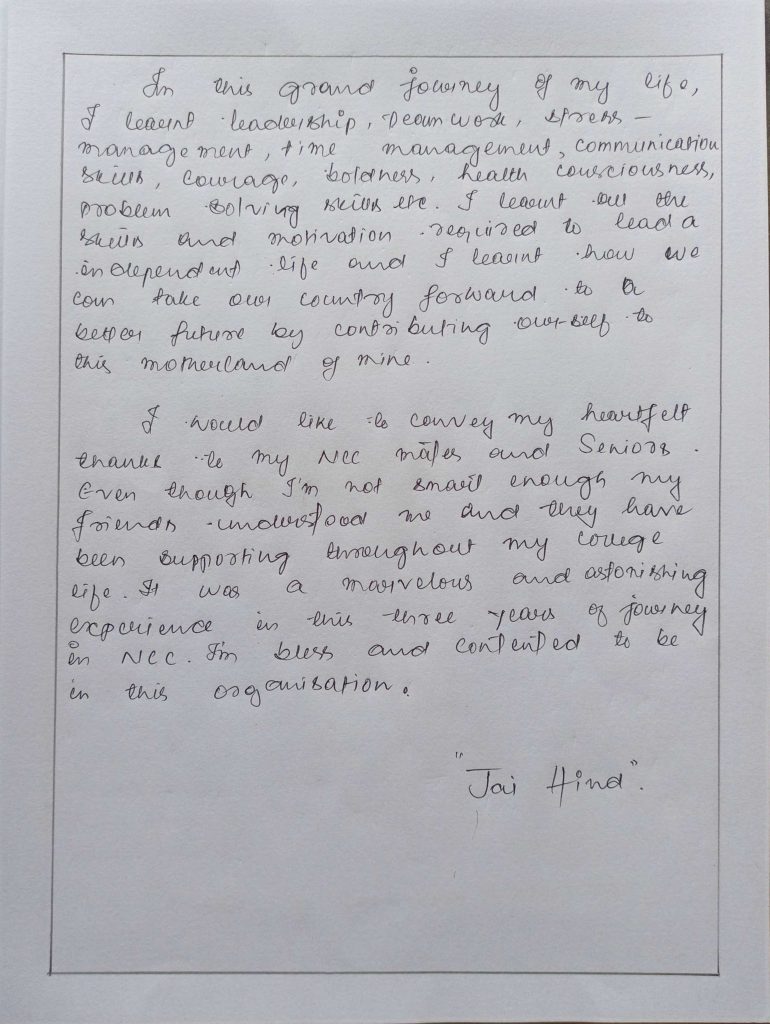 In this grand journey of my life,
I learnt leadership, Team work, stress-
management, time management, communication
skills, courage, boldness, health consciousness,
problem solving skills etc. I learnt all the
skills and motivation required to lead a
independent life and I learnt how we
can take our country forward to a
better future by contributing our self to
this motherland of mine.
I would like to convey my heartfelt
thanks to my NCC mates and Seniors.
Even though I'm not smart enough my
friends understood me and they have
been supporting throughout my college
life. It was a marvelous and astonishing
experience in this three years of journey
in NCC. I'm bless and contented to be
in this organisation.
"Jai Hind".